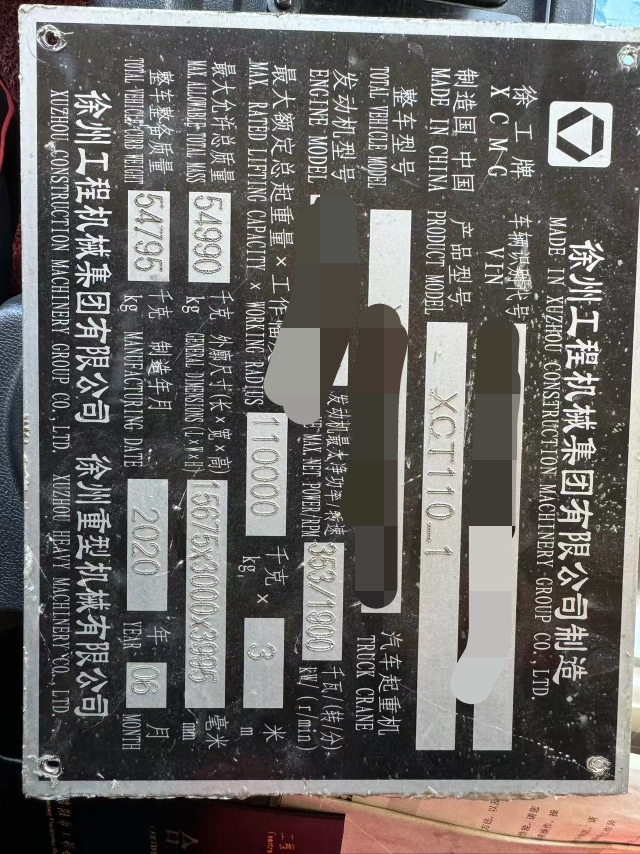 徐州工程机械集团有限公司制造
MADE IN XUZHOU CONSTRUCTION MACHINERY GROUP CO.,LTD.
徐 工 牌 车辆识别代号
XCMG VIN
制造国 中国 产品型号 XCT110_1
MADE IN CHINA PRODUCT MODEL
整车型号 汽车起重机
TOTAL VEHICLE MODEL TRUCK CRANE
发动机型号 发动机最大净功率/转速 353/1900 千瓦/(转/分)
ENGINE MODEL MAX.NET POWER/RPM kW/(r/min)
最大额定总起重量×工作幅度 110000 千克 × 3 米
MAX. RATED LIFTING CAPACITY × WORKING RADIUS kg m
最大允许总质量 54990 千克 外廓尺寸(长×宽×高) 15675X3000X3995 毫米
MAX ALLOWABLE TOTAL MASS kg GENERAL DIMENSIONS(L×W×H) mm
整车整备质量 54795 千克 制造年月 2020 年 06 月
TOTAL VEHICLE CURB WEIGHT kg MANUFACTURING DATE YEAR MONTH
徐州工程机械集团有限公司 徐州重型机械有限公司
XUZHOU CONSTRUCTION MACHINERY GROUP CO.,LTD. XUZHOU HEAVY MACHINERY CO., LTD.